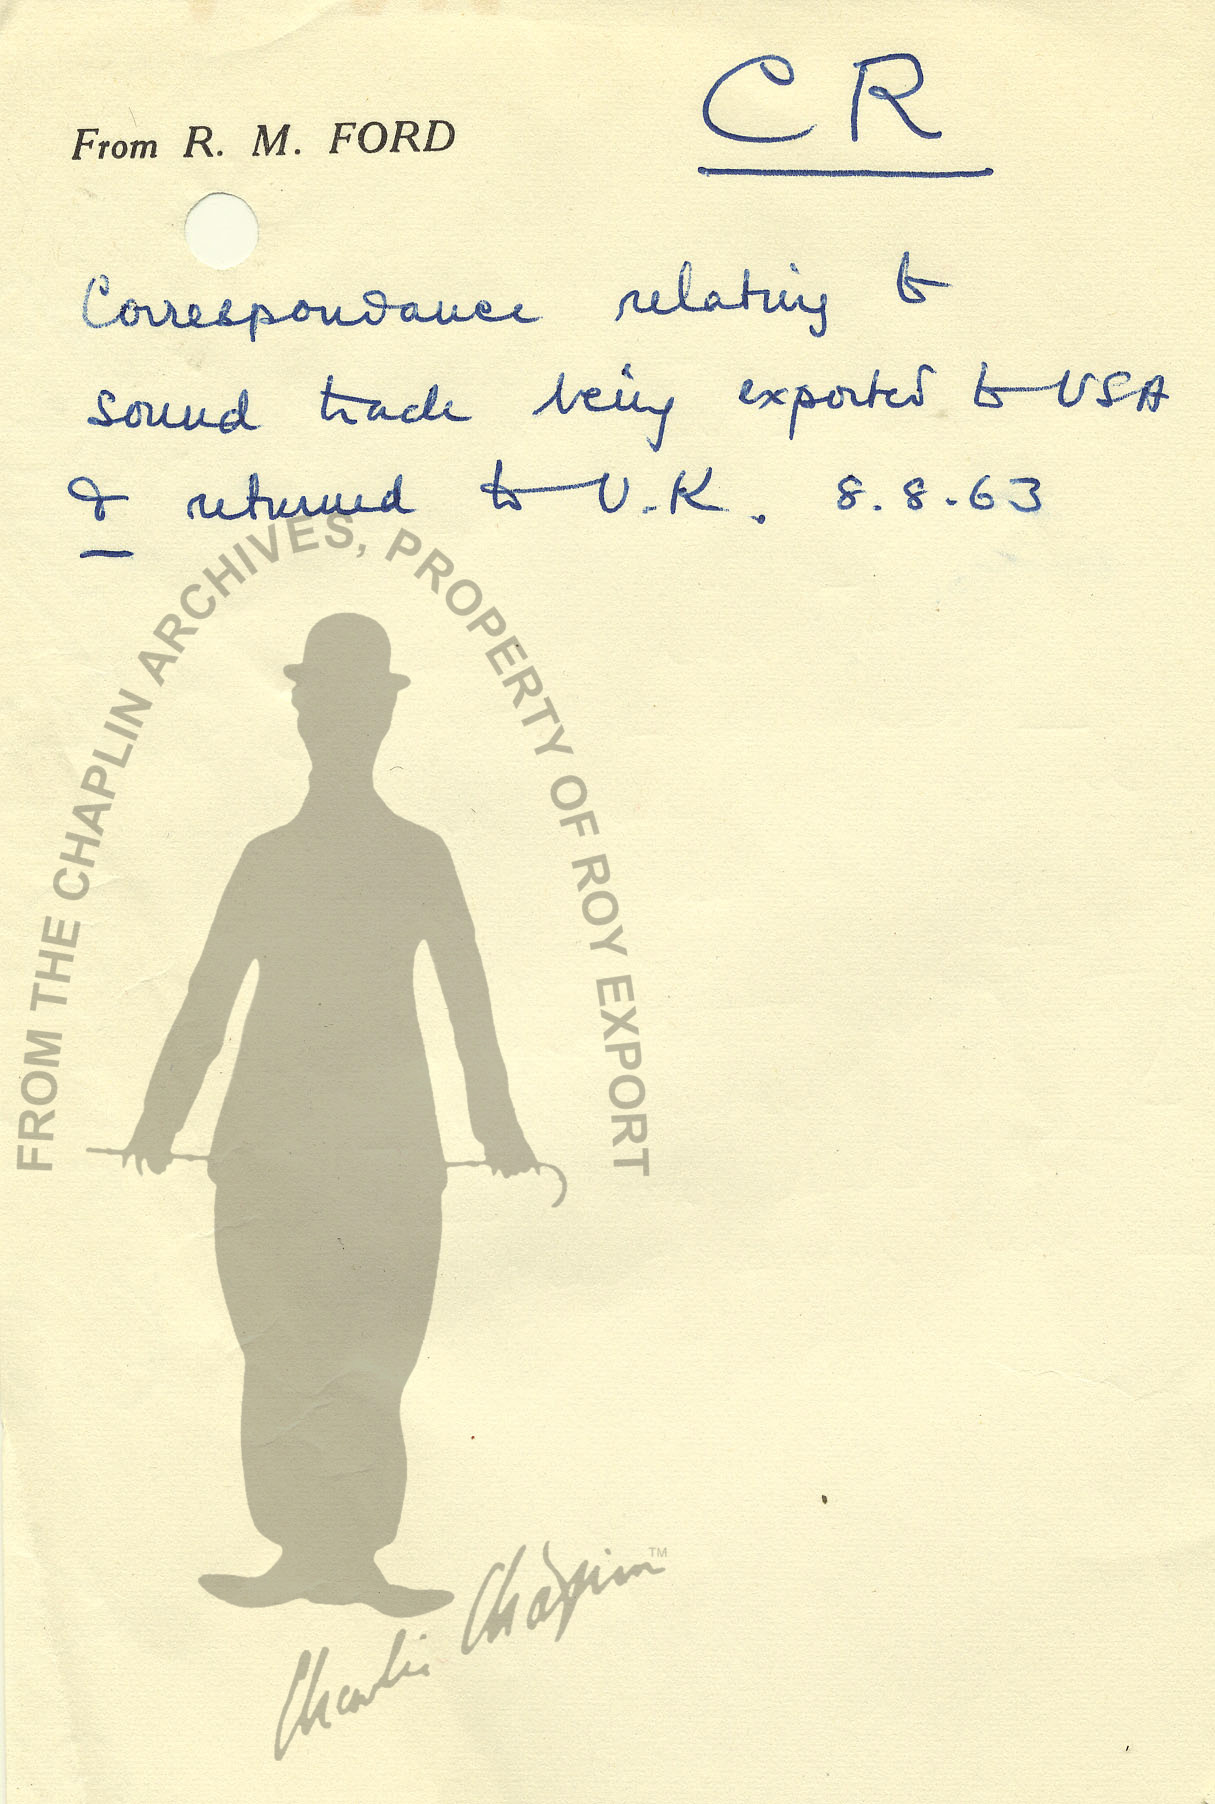 From R. M. FORD
CR
Correspondance relating to
sound track being exported to USA
& returned to U.K. 8.8.63
FROM THE CHAPLIN ARCHIVES, PROPERTY OF ROY EXPORT
Charlie Chaplin™